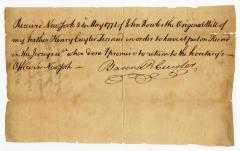 Receiv'd New York 24 May 1771 of John Roebs the Original Will of
my Father Henry Cuyler Deceas'd in order to have it put on Record
in the Jerseys wh. when done I promise to return to the Secretarys
Office in New York
Barend R Cuyler